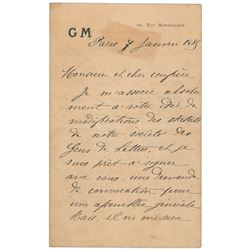 GM
Rue Montchanin
Paris 7 Janvier 188
Monsieur et cher confrère
Je m'associe absolu
ment à votre idée de
modifications des statuts
de notre société des
Gens de Lettres, et je
suis prêt à signer
avec vous, une demande
de convocation pour
une assemblée générale
Mais, il ne me sera